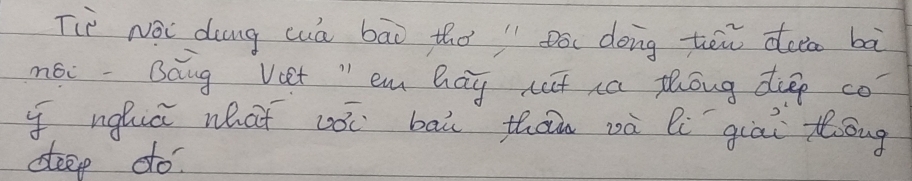 Từ nội dung của bài thơ " Đọc dòng tiễn đưa bà
nội - Bằng Việt " em hãy rút ra thông điệp có
ý nghĩa nhất với bản thân và lí giải thông
điệp đó.